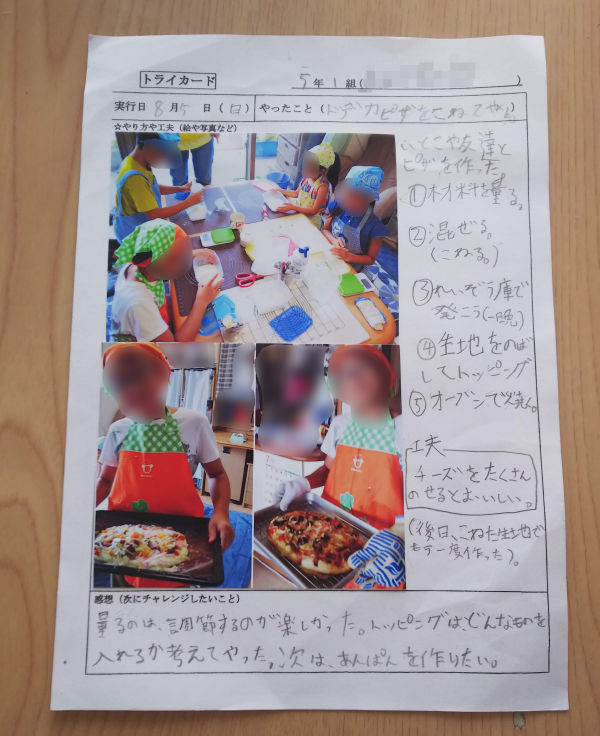 トライカード
5年1組(          )
実行日 8月5日(日) やったこと(ピザをこねてやく)
☆やり方や工夫(絵や写真など)
いとこや友達と
ピザを作った。
①材料を量る。
②混ぜる。
(こねる。)
③れいぞう庫で
発こう(一晩)
④生地をのば
してトッピング
⑤オーブンで焼く。
工夫
チーズをたくさん
のせるとおいしい。
(後日、こねた生地で
もう一度作った)。
感想(次にチャレンジしたいこと)
量るのは、調節するのが楽しかった。トッピングは、どんなものを
入れるか考えてやった。次は、あんぱんを作りたい。